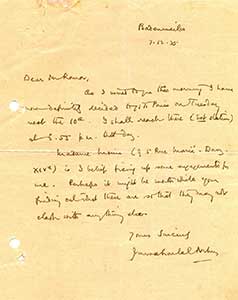 Badenweiler
7-12-35
Dear Mr Raman,
As I wired to you this morning I have
now definitely decided to go to Paris on Tuesday
next the 10th. I shall reach there (Est station)
at 5.55 p.m. that day.
Madame Morin (
XIVe) is I belief fixing up some engagements for
me. Perhaps it might be worth while your
finding out what these are so that they may not
clash with anything else.
Yours Sincerely
Jawaharlal Nehru